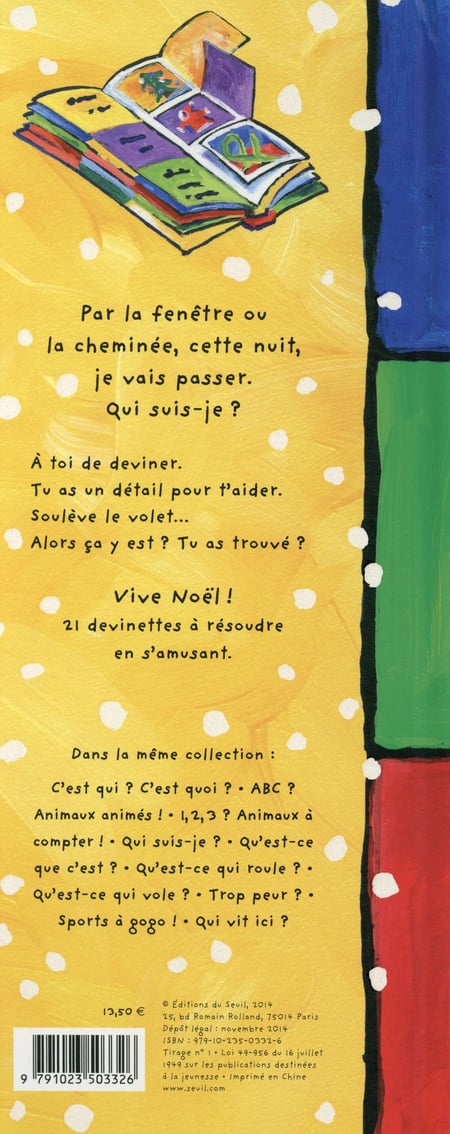 Par la fenêtre ou
la cheminée, cette nuit,
je vais passer.
Qui suis-je ?
À toi de deviner.
Tu as un détail pour t'aider.
Soulève le volet...
Alors ça y est ? Tu as trouvé ?
Vive Noël !
21 devinettes à résoudre
en s'amusant.
Dans la même collection :
C'est qui ? C'est quoi ? • ABC ?
Animaux animés ! • 1,2,3 ? Animaux à
compter ! • Qui suis-je ? • Qu'est-ce
que c'est ? • Qu'est-ce qui roule ? •
Qu'est-ce qui vole ? • Trop peur ? •
Sports à gogo ! • Qui vit ici ?
13,50 €
© Éditions du Seuil, 2014
25, bd Romain Rolland, 75014 Paris
Dépôt légal : novembre 2014
ISBN : 979-10-235-0332-6
Tirage n° 1 • Loi 49-956 du 16 juillet
1949 sur les publications destinées
à la jeunesse • Imprimé en Chine
www.seuil.com
9 791023 503326